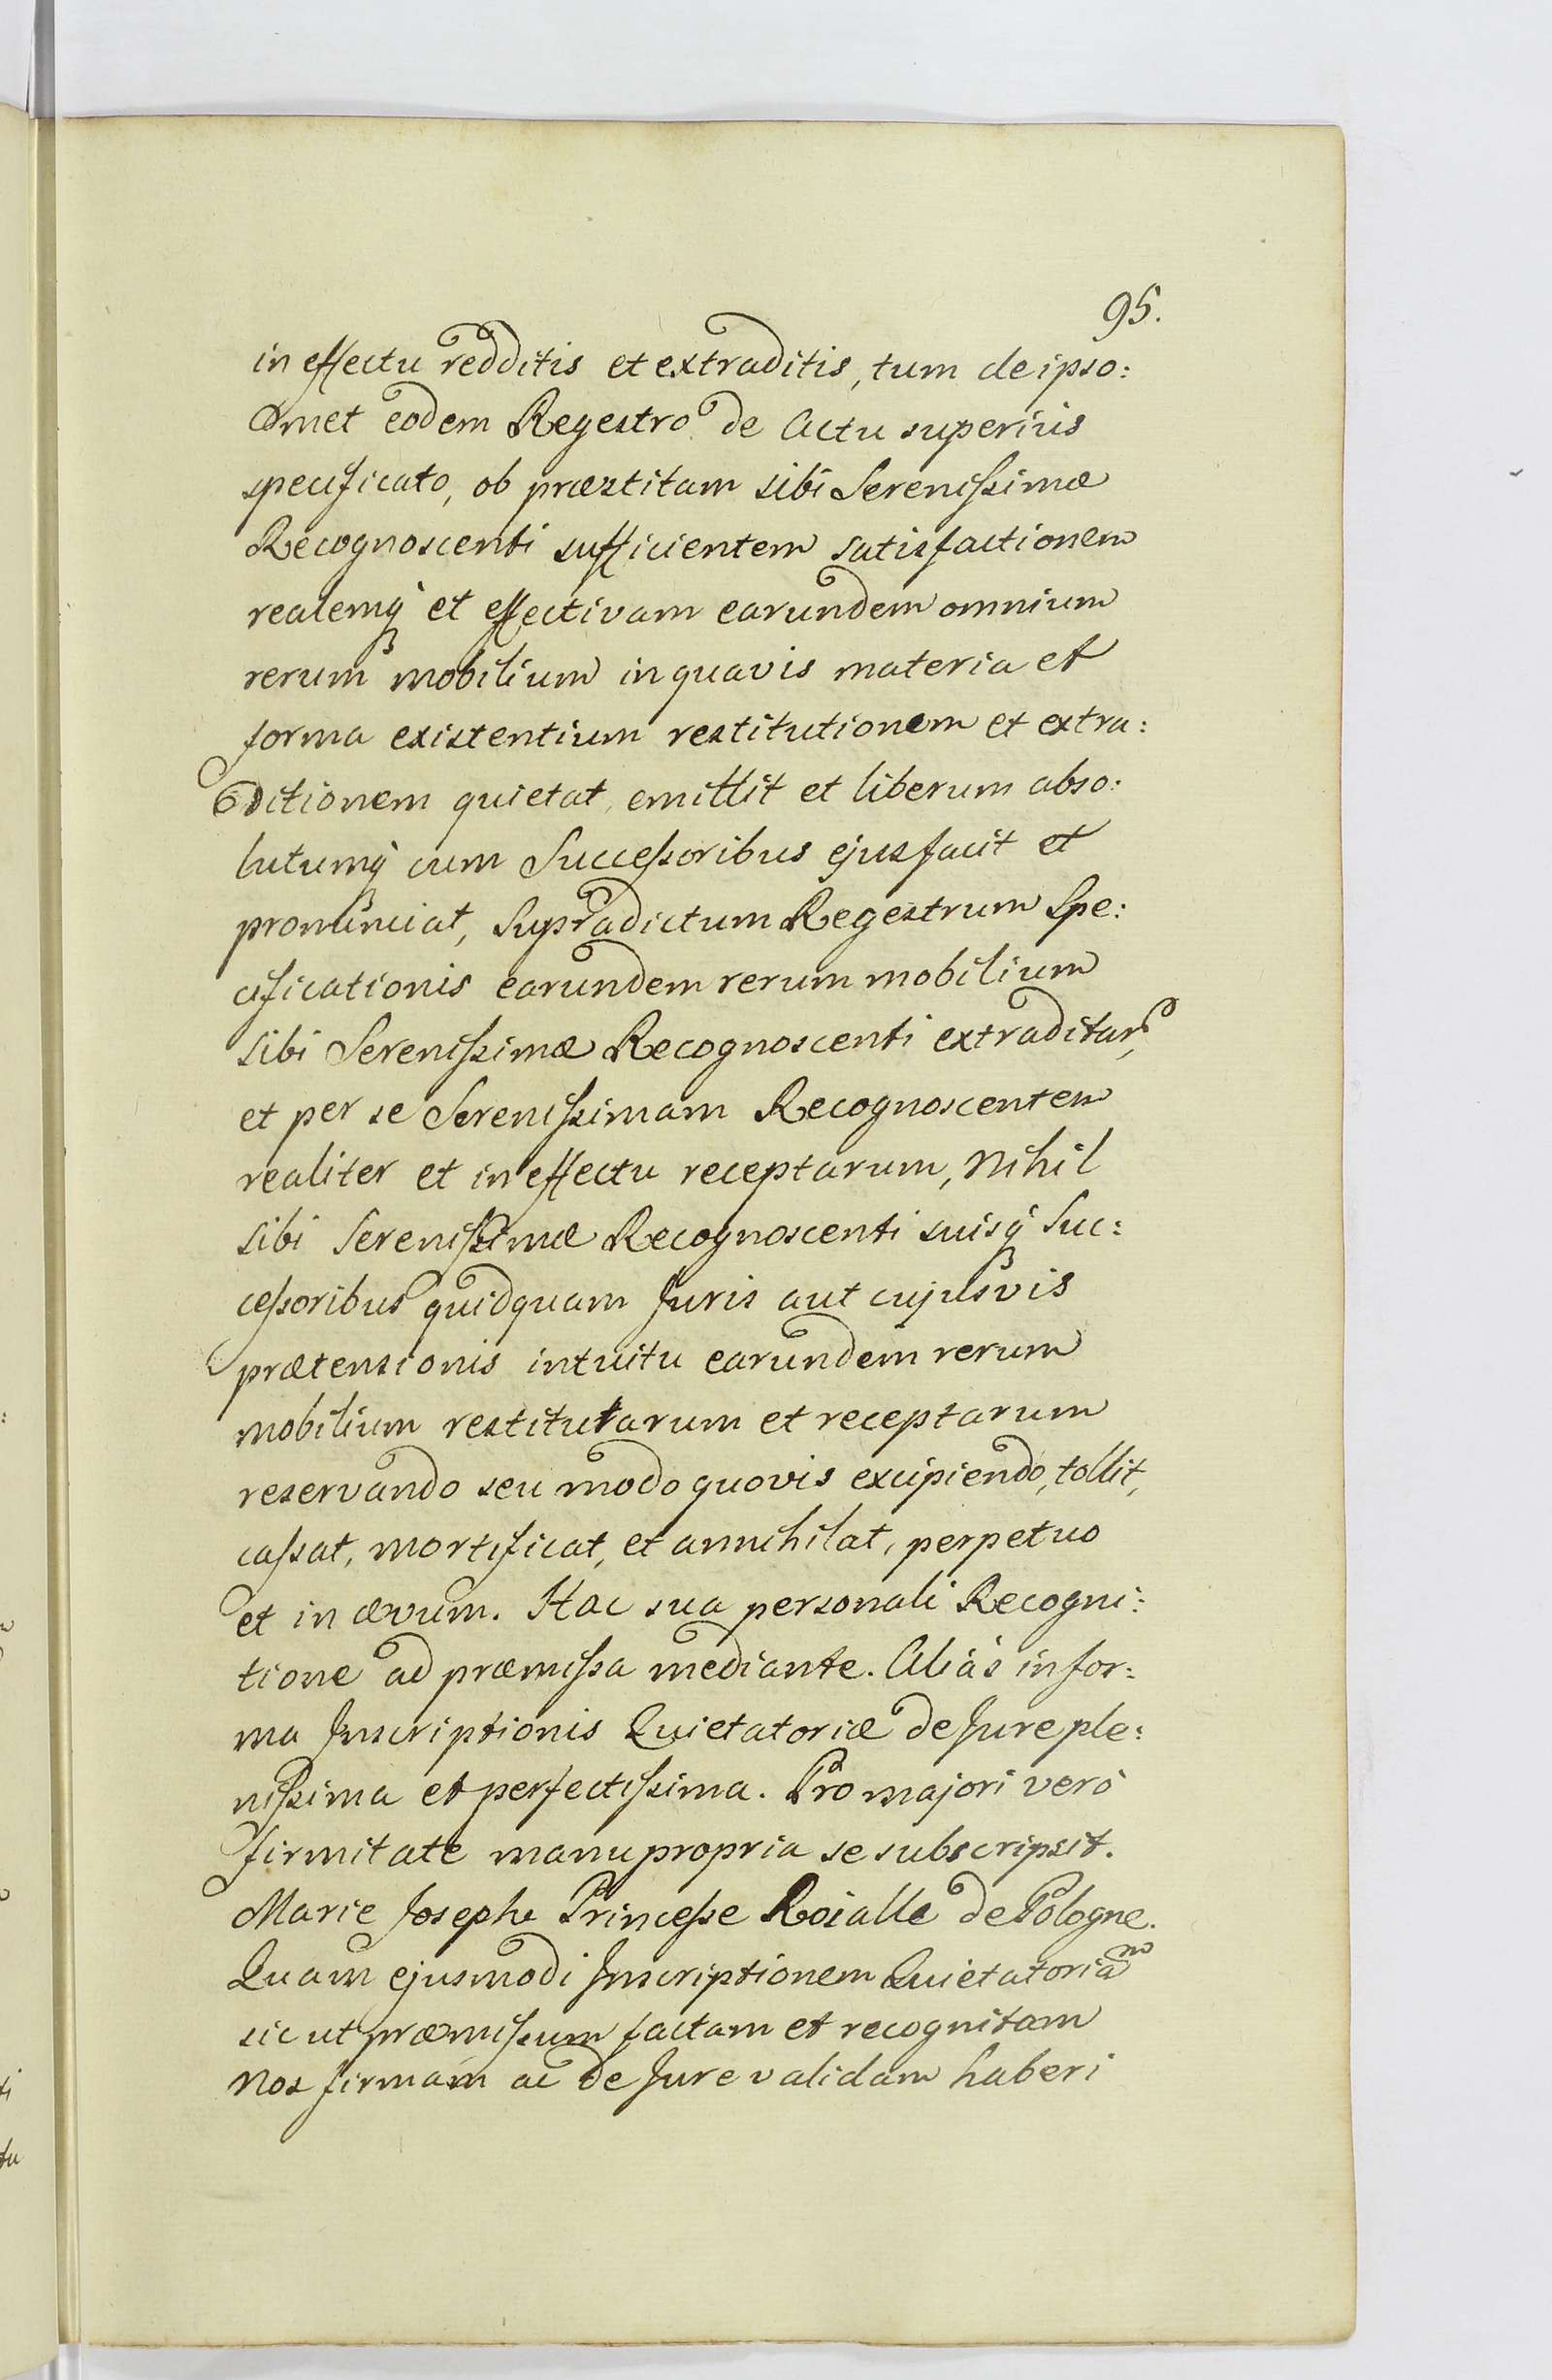 95.
in effectu redditis et extraditis, tum de ipso:
met eodem Regestro de Actu superius
specificato, ob præstitam sibi Serenissimæ
Recognoscenti sufficientem satisfactionem
realemq́ et effectivam earundem omnium
rerum mobilium in quavis materia et
forma existentium restitutionem et extra:
ditionem quietat, emittit et liberum abso:
lutumq́ cum Successoribus ejus facit et
pronunciat, Supradictum Regestrum Spe:
cificationis earundem rerum mobilium
sibi Serenissimæ Recognoscenti extraditar,
et per se Serenissimam Recognoscentem
realiter et in effectu receptarum, Nihil
sibi Serenissimæ Recognoscenti suisq́ Suc:
cessoribus quidquam Juris aut cujusvis
prætensionis intuitu earundem rerum
mobilium restitutarum et receptarum
reservando seu modo quovis excipiendo, tollit,
cassat, mortificat, et annihilat, perpetuo
et in ævum. Hac sua personali Recogni:
tione ad præmissa mediante. Aliàs in for:
ma Inscriptionis Quietatoriæ de Jure ple:
nissima et perfectissima. Pro majori verò
firmitate manu propria se subscripsit.
Marie Josephe Princesse Roialle de Pologne.
Quam ejusmodi Inscriptionem Quietatoriam
sic ut præmissum factam et recognitam
Nos firmam ac de Jure validam haberi